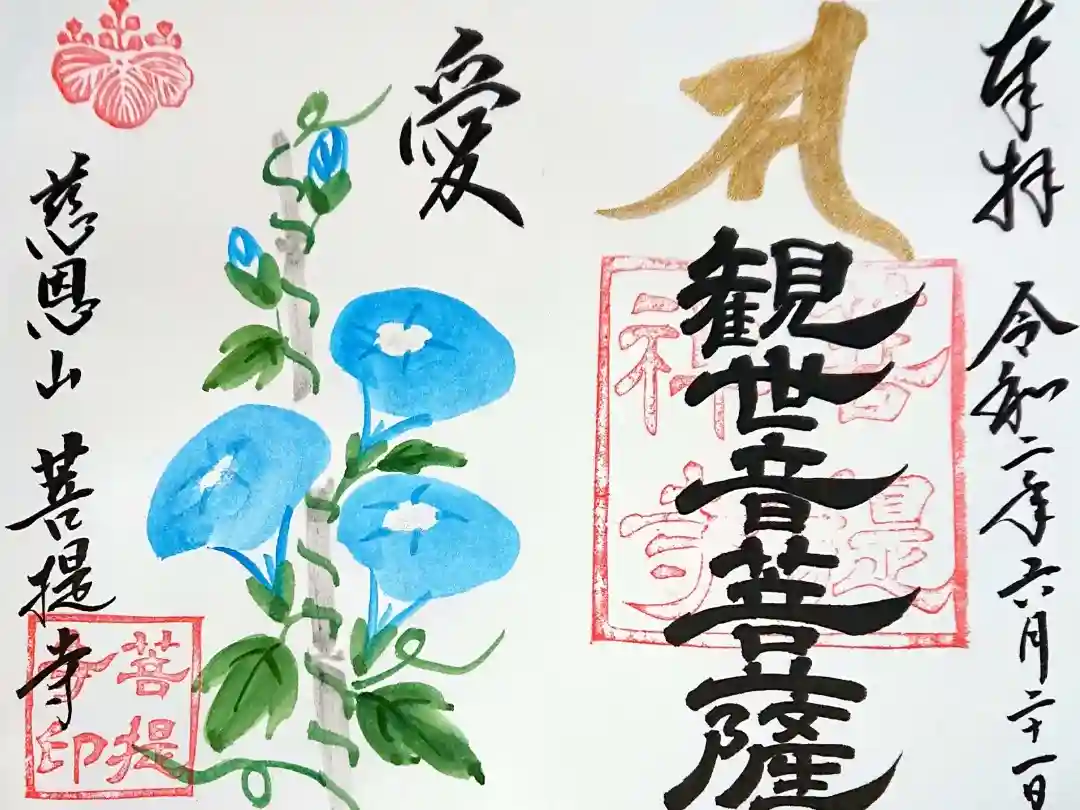 奉拝　令和二年六月二十一日
観世音菩薩
愛
慈恩山　菩提寺
菩提
寺印